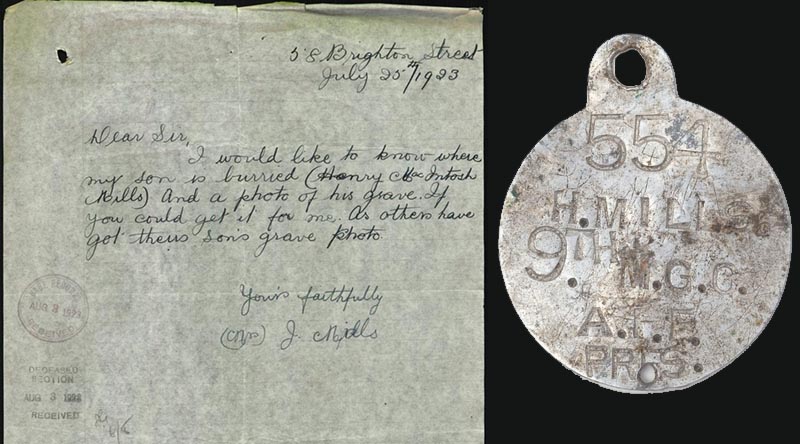 58 Brighton Street
July 25th/1923
Dear Sir,
I would like to know where
my son is burried (Henry McIntosh
Mills) And a photo of his grave. If
you could get it for me. As others have
got theirs son's grave photo.
Your's faithfully
(Mrs) J. Mills
RECEIVED
DECEASED
SECTION
AUG 3 1923
RECEIVED
554
H. MILLS
9TH M.G.C.
A.I.F.
PRES.